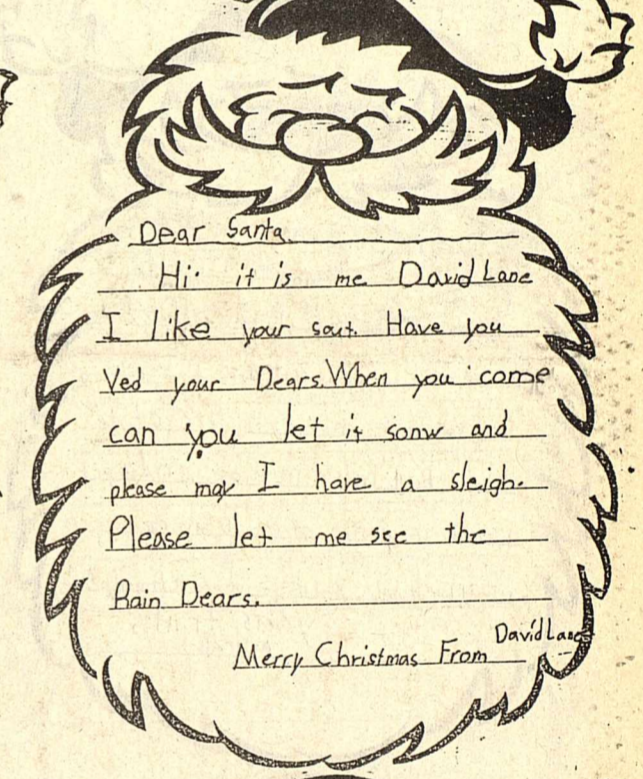 Dear Santa.
Hi. it is me David Lane
I like your sout. Have you
Ved your Dears. When you come
can you let it sonw and
please may I have a sleigh.
Please let me see the
Rain Dears.
Merry Christmas From David Lane